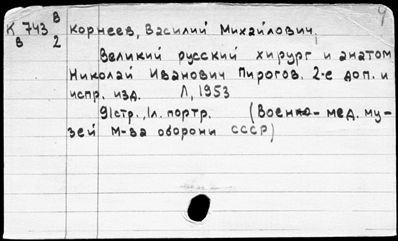 К 743 В Корнеев, Василий Михайлович.
В 2
Великий русский хирург и анатом
Николай Иванович Пирогов. 2-е доп. и
испр. изд. Л, 1953
91стр., 1л. портр. (Военно- мед. му-
зей М-ва оборони СССР)